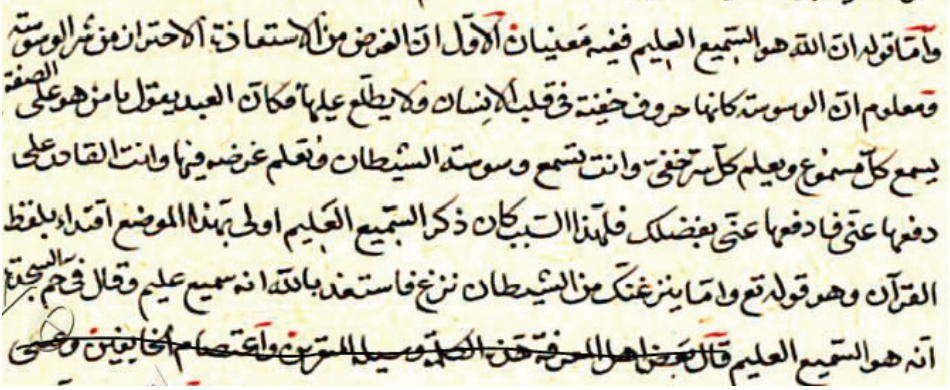 وأما قوله ان الله هو السميع العليم ففيه معنيان الاول ان الغرض من الاستعاذة الاحتراز من شر الوسوسة
ومعلوم ان الوسوسة كانها حروف خفية فى قلب الانسان ولا يطلع عليها فكان العبد يقول يا من هو على الصفة
يسمع كل مسموع ويعلم كل سر خفى وانت تسمع وسوسة الشيطان وتعلم غرضه فيها وانت القادر على
دفعها عنى فادفعها عنى بفضلك فلهذا السبب كان ذكر السميع العليم اولى بهذا الموضع اقتداء بلفظ
القرآن وهو قوله تع واما ينزغنك من الشيطان نزغ فاستعذ بالله انه سميع عليم وقال فى حم السجدة
انه هو السميع العليم قال بعض اهل المعرفة هذه الكلمة وسيلة المتقربين واعتصام الخايفين